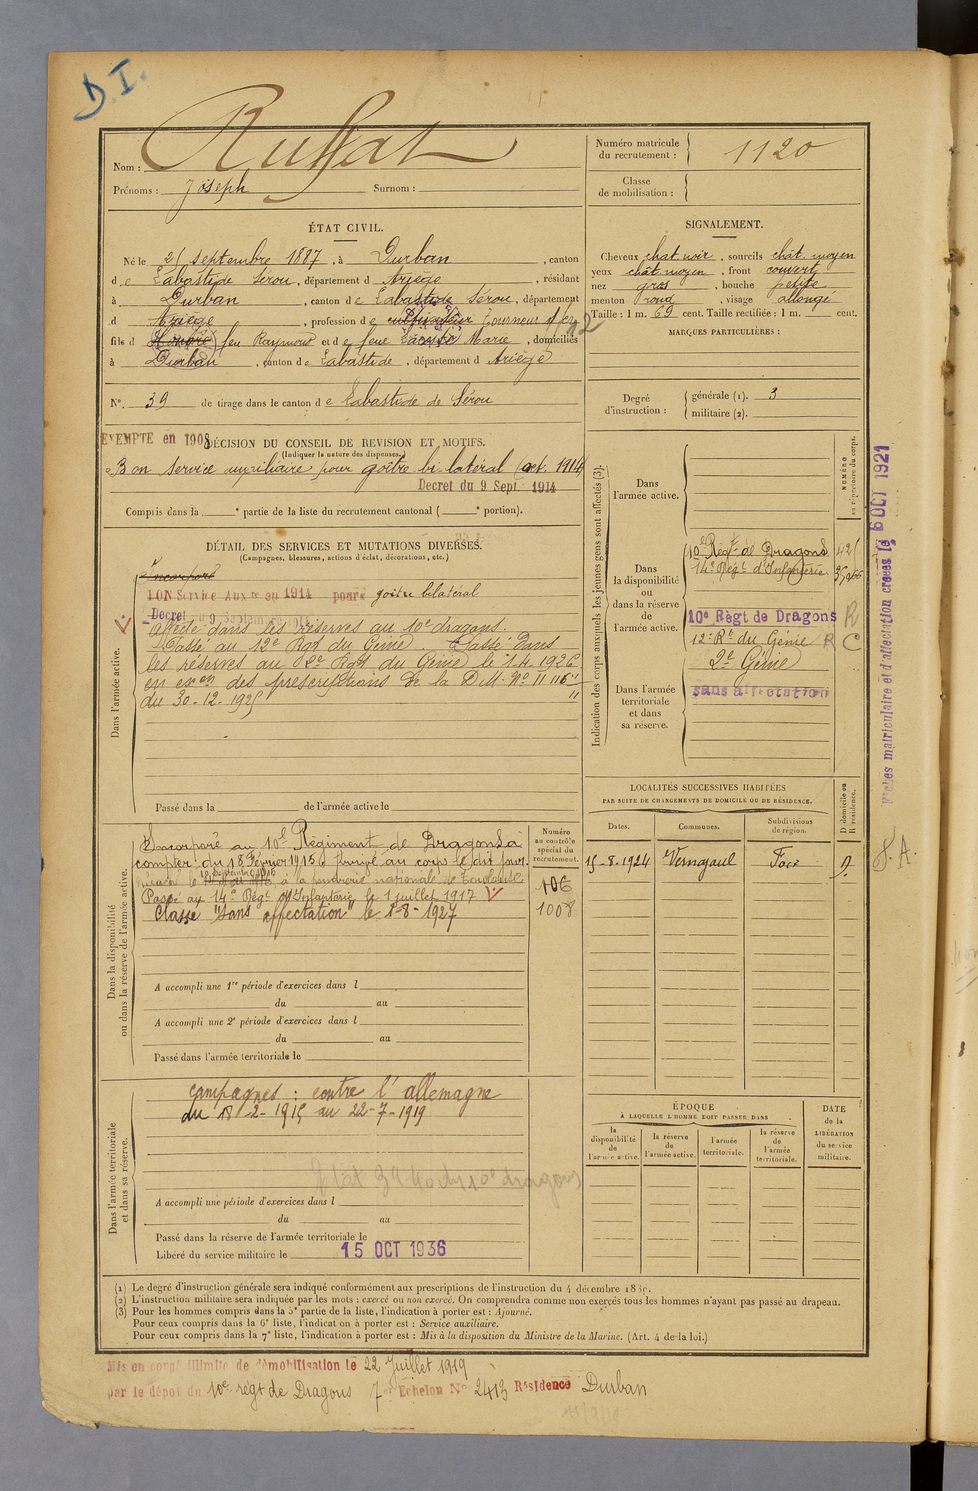 D. I.
Nom : Ruffat
Prénoms : Joseph Surnom :
Numéro matricule du recrutement : 1120
Classe de mobilisation :
ÉTAT CIVIL.
Né le septembre 1887, à Durban, canton
de Labastide Sérou, département d Ariège, résidant
à Durban, canton de Labastide Sérou, département
d Ariège, profession de cultivateur tourneur
fils d Honoré feu Raymond et de feue Marie, domiciliés
à Durban, canton de Labastide, département d Ariège
N°. 39 de tirage dans le canton de Labastide de Sérou
SIGNALEMENT.
Cheveux chat noir, sourcils chat. moyen
yeux chat moyen, front couvert
nez gros, bouche petite
menton rond, visage allongé
Taille : 1 m. 69 cent. Taille rectifiée : 1 m. cent.
MARQUES PARTICULIÈRES :
Degré d'instruction : générale (1). 3
militaire (2).
EXEMPTE en 1908
DÉCISION DU CONSEIL DE REVISION ET MOTIFS.
(Indiquer la nature des dispenses.)
Bon service auxiliaire pour goître bi latéral 1914
Decret du 9 Sept. 1914
Compris dans la e partie de la liste du recrutement cantonal ( e portion).
DÉTAIL DES SERVICES ET MUTATIONS DIVERSES.
(Campagnes, blessures, actions d'éclat, décorations, etc.)
Incorporé
BON Service Aux re au 1914 pour goitre bilatéral
Decret du 9 Septembre 1914
Affecté dans les réserves au 10e dragons.
Passé au 12e Rgt du Génie. Passé dans
les réserves au 2e Rgt du Génie le 1.4.1926
en exon des prescriptions de la D.M. N° 11 116
du 30-12-1925
Dans l'armée active.
Passé dans la de l'armée active le
Indication des corps auxquels les jeunes gens sont affectés (3).
NUMÉRO au répertoire du corps.
Dans l'armée active.
Dans la disponibilité ou dans la réserve de l'armée active.
10e Régt de Dragons
14e Régt d'Infanterie
10e Règt de Dragons R
12e Rt du Génie R C
2e Génie
sans affectation
Dans l'armée territoriale et dans sa réserve.
Fiches matriculaire et d'affectation créées le 6 OCT 1921
LOCALITÉS SUCCESSIVES HABITÉES
PAR SUITE DE CHANGEMENTS DE DOMICILE OU DE RÉSIDENCE.
Dates. Communes. Subdivisions de région. D domicile ou R résidence.
15-8-1924 Vernajoul Foix D.
S.A.
Dans la disponibilité ou dans la réserve de l'armée active.
Numéro au contrôle spécial du recrutement.
Incorporé au 10e Régiment de Dragons à
compter du 18 Février 1915 Arrivé au corps le dit jour.
à la poudrerie nationale de Toulouse.
Passé au 14e Régt d'Infanterie le 1 juillet 1917
Classé "Sans affectation" le 1-8-1927
106
1008
A accompli une 1re période d'exercices dans l
du au
A accompli une 2e période d'exercices dans l
du au
Passé dans l'armée territoriale le
Dans l'armée territoriale et dans sa réserve.
Campagnes : contre l'allemagne
du 18-2-1915 au 22-7-1919
A accompli une période d'exercices dans l
du au
Passé dans la réserve de l'armée territoriale le
Libéré du service militaire le 15 OCT 1936
ÉPOQUE
À LAQUELLE L'HOMME DOIT PASSER DANS
la disponibilité de l'armée active. la réserve de l'armée active. l'armée territoriale. la réserve de l'armée territoriale.
DATE de la LIBÉRATION du service militaire.
(1) Le degré d'instruction générale sera indiqué conformément aux prescriptions de l'instruction du 4 décembre
(2) L'instruction militaire sera indiquée par les mots : exercé ou non exercé. On comprendra comme non exercés tous les hommes n'ayant pas passé au drapeau.
(3) Pour les hommes compris dans la 5e partie de la liste, l'indication à porter est : Ajourné.
Pour ceux compris dans la 6e liste, l'indication à porter est : Service auxiliaire.
Pour ceux compris dans la 7e liste, l'indication à porter est : Mis à la disposition du Ministre de la Marine. (Art. 4 de la loi.)
Mis en congé illimité de démobilisation le 22 Juillet 1919
par le dépot du 10e régt de Dragons 7e Echelon No 2413 Résidence Durban